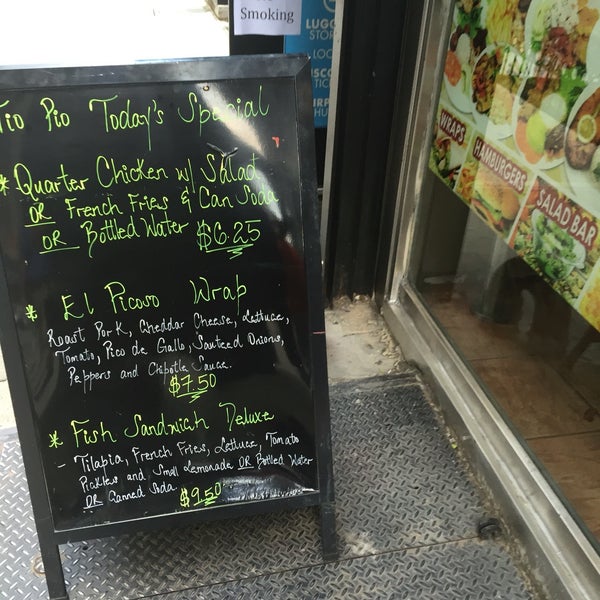 Smoking
LUGG
STOR
LOC
Tio Pio Today's Special
* Quarter Chicken w/ Salad
OR French Fries & Can Soda
OR Bottled Water $6.25
* El Picoso Wrap
Roast Pork, Cheddar Cheese, Lettuce,
Tomato, Pico de Gallo, Sauteed Onions,
Peppers and Chipotle Sauce.
$7.50
* Fish Sandwich Deluxe
- Tilapia, French Fries, Lettuce, Tomato
Pickles and Small Lemonade OR Bottled Water
OR Canned Soda. $9.50
WRAPS
HAMBURGERS
SALAD BAR